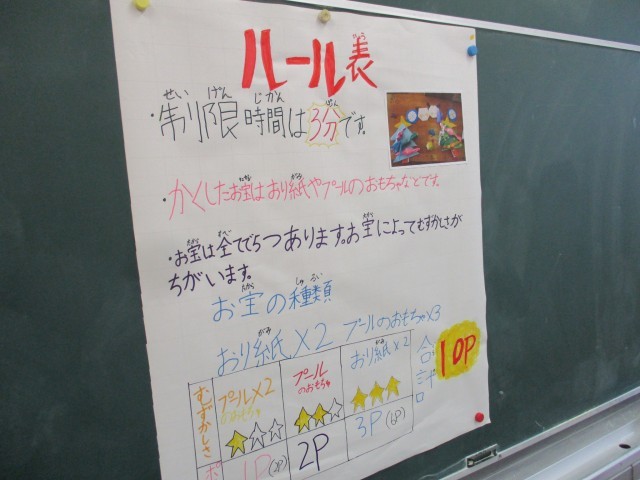 ルール表
・制限時間は3分です。
・かくしたお宝はおり紙やプールのおもちゃなどです。
・お宝は全てで5つあります。お宝によってむずかしさが
ちがいます。
お宝の種類
おり紙×2 プールのおもちゃ×3
むずかしさ プール×2 のおもちゃ ★☆☆ プールのおもちゃ ★★☆ おり紙×2 ★★★
ポ 1P(2P) 2P 3P(6P)
合計 10P